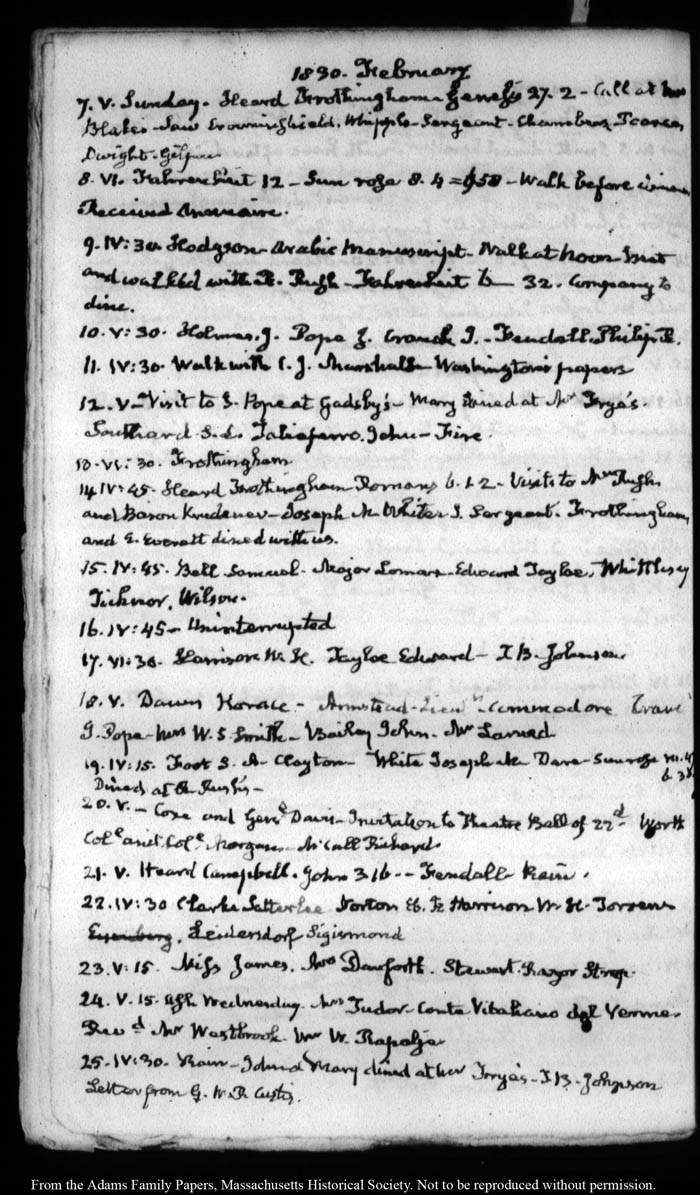 1830. February
7. V. Sunday. Heard Frothingham Genesis 27. 2 - Call at Mrs
Blake's Saw Crowninshield, Whipple Sergeant. Chambers Pearce,
Dwight. Gilpin
8. VI. Fahrenheit 12 - Sun rose 8. 4 = 6.58 - Walk before dinner
Received Annuaire.
9. IV: 30. Hodgson - Arabic Manuscript. Walk at Noon Met
and walked with R. Rush - Fahrenheit 6 - 32. Company to
dine.
10. V: 30. Holmes, J. Pope J. Cranch J. - Fendall. Philip R.
11. IV: 30. Walk with C. J. Marshall - Washington's papers
12. V - Visit to J. Pope at Gadsby's - Mary dined at Mrs Frye's.
Southard S. L. Taliaferro. John - Fire.
13. VI: 30. Frothingham
14 IV: 45. Heard Frothingham Romans 6. 1. 2 - Visits to Mrs Rush,
and Baron Krudener - Joseph M. White J. Sergeant. Frothingham,
and E. Everett dined with us.
15. IV: 45. Bell Samuel. Major Lomax. Edward Tayloe, Whittlesey
Ticknor, Wilson.
16. IV: 45 - Uninterrupted
17. VI: 30. Harrison W. H. Tayloe Edward - J. B. Johnson.
18. V. Horace - Armstead - Commodore
J. Pope - W. S. Smith - Bailey John - Mr Larned
19. IV: 15. Foot S. A. Clayton - White Joseph M. Dave - Sun rose VI. 4
6. 38
Dined at R. Rush's -
20. V. - Coxe and Genl Invitation to Theatre Ball of 22d - Worth
Coll and Coll Morgan McCall Richard.
21. V. Heard Campbell. John 3. 16 - - Fendall - Rain.
22. IV: 30 Clarke Satterlee Norton Eb. F. Harrison W. H.
Leidersdorf Sigismond
23. V: 15. Miss James. Mrs Danforth. Stewart. Razor Strop.
24. V. 15. Ash Wednesday. Mrs Tudor - Conte Vitaliano dal Verme.
Revd Mr Westbrook. Wm W. Rapalje
25. IV: 30. Rain - John and Mary dined at Mrs Frye's - J. B. Johnson
Letter from G. W. P. Custis.
From the Adams Family Papers, Massachusetts Historical Society. Not to be reproduced without permission.